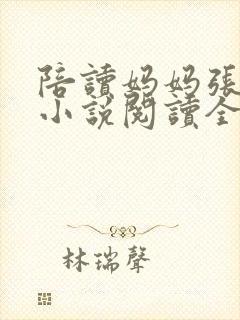 陪讀媽媽張
小說閱讀全
林瑞聲